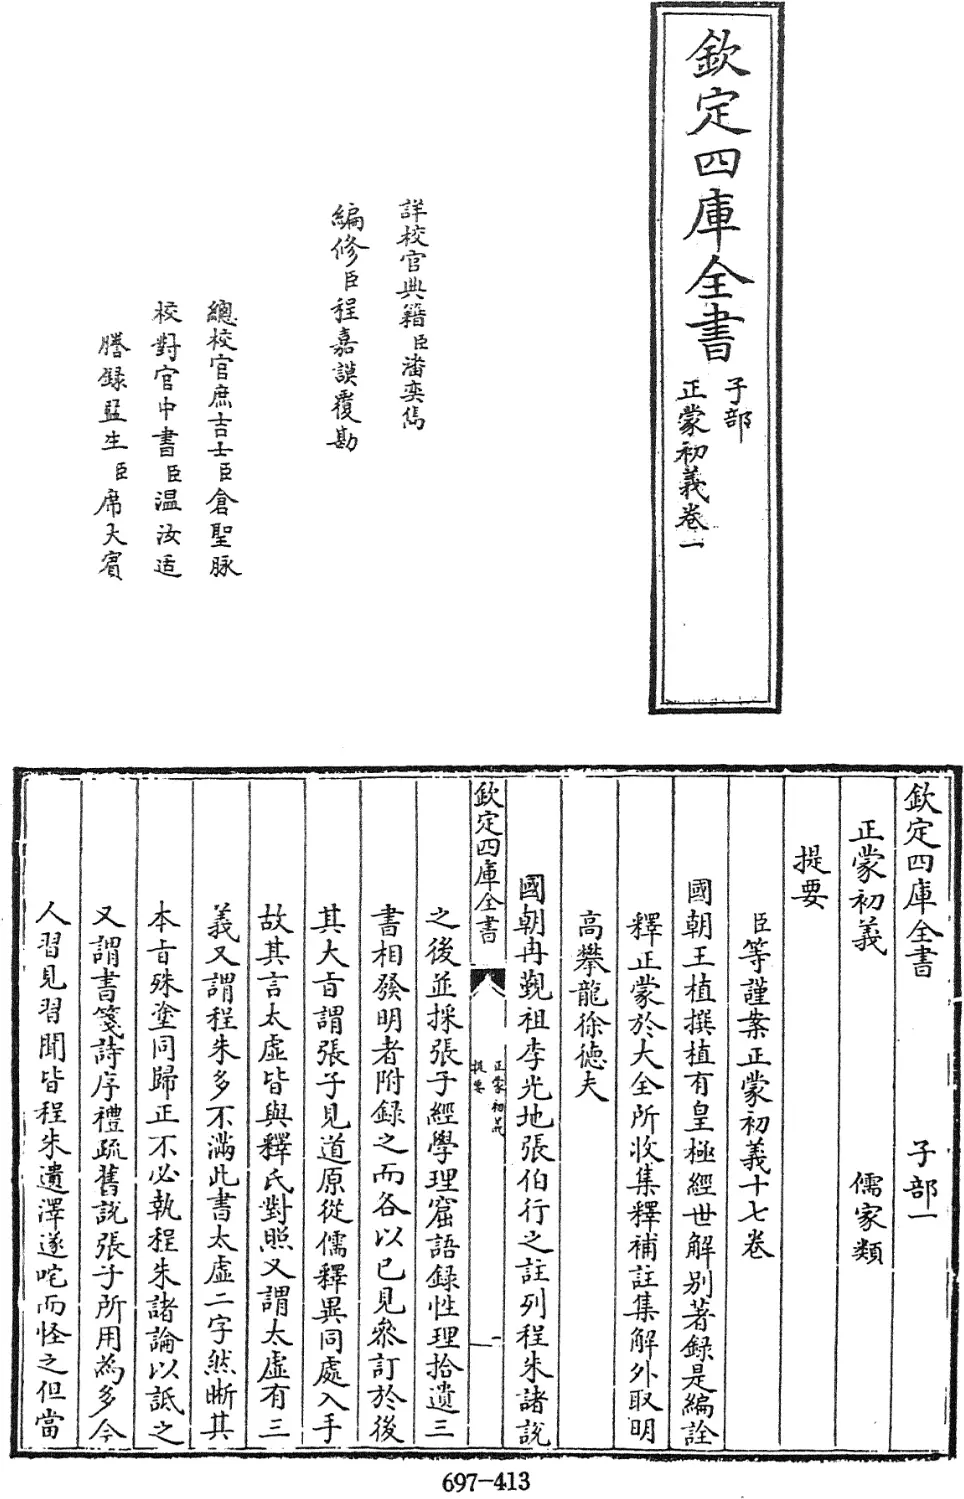 欽定四庫全書
子部
正蒙初義卷一
詳校官典籍臣潘奕雋
編修臣程嘉謨覆勘
總校官庶吉士臣倉聖脉
校對官中書臣温汝适
謄録監生臣席大賓
欽定四庫全書　子部一
正蒙初義　儒家類
提要
臣等謹案正蒙初義十七卷
國朝王植撰植有皇極經世解别著録是編詮
釋正蒙於大全所收集釋補註集解外取明
高攀龍徐徳夫
國朝冉覲祖李光地張伯行之註列程朱諸説
欽定四庫全書
正蒙初義
提要
一
之後並採張子經學理窟語録性理拾遺三
書相發明者附録之而各以已見叅訂於後
其大㫖謂張子見道原從儒釋異同處入手
故其言太虚皆與釋氏對照又謂太虚有三
義又謂程朱多不滿此書太虚二字然晰其
本㫖殊塗同歸正不必執程朱諸論以詆之
又謂書箋詩序禮疏舊説張子所用為多今
人習見習聞皆程朱遺澤遂咤而怪之但當
697-413